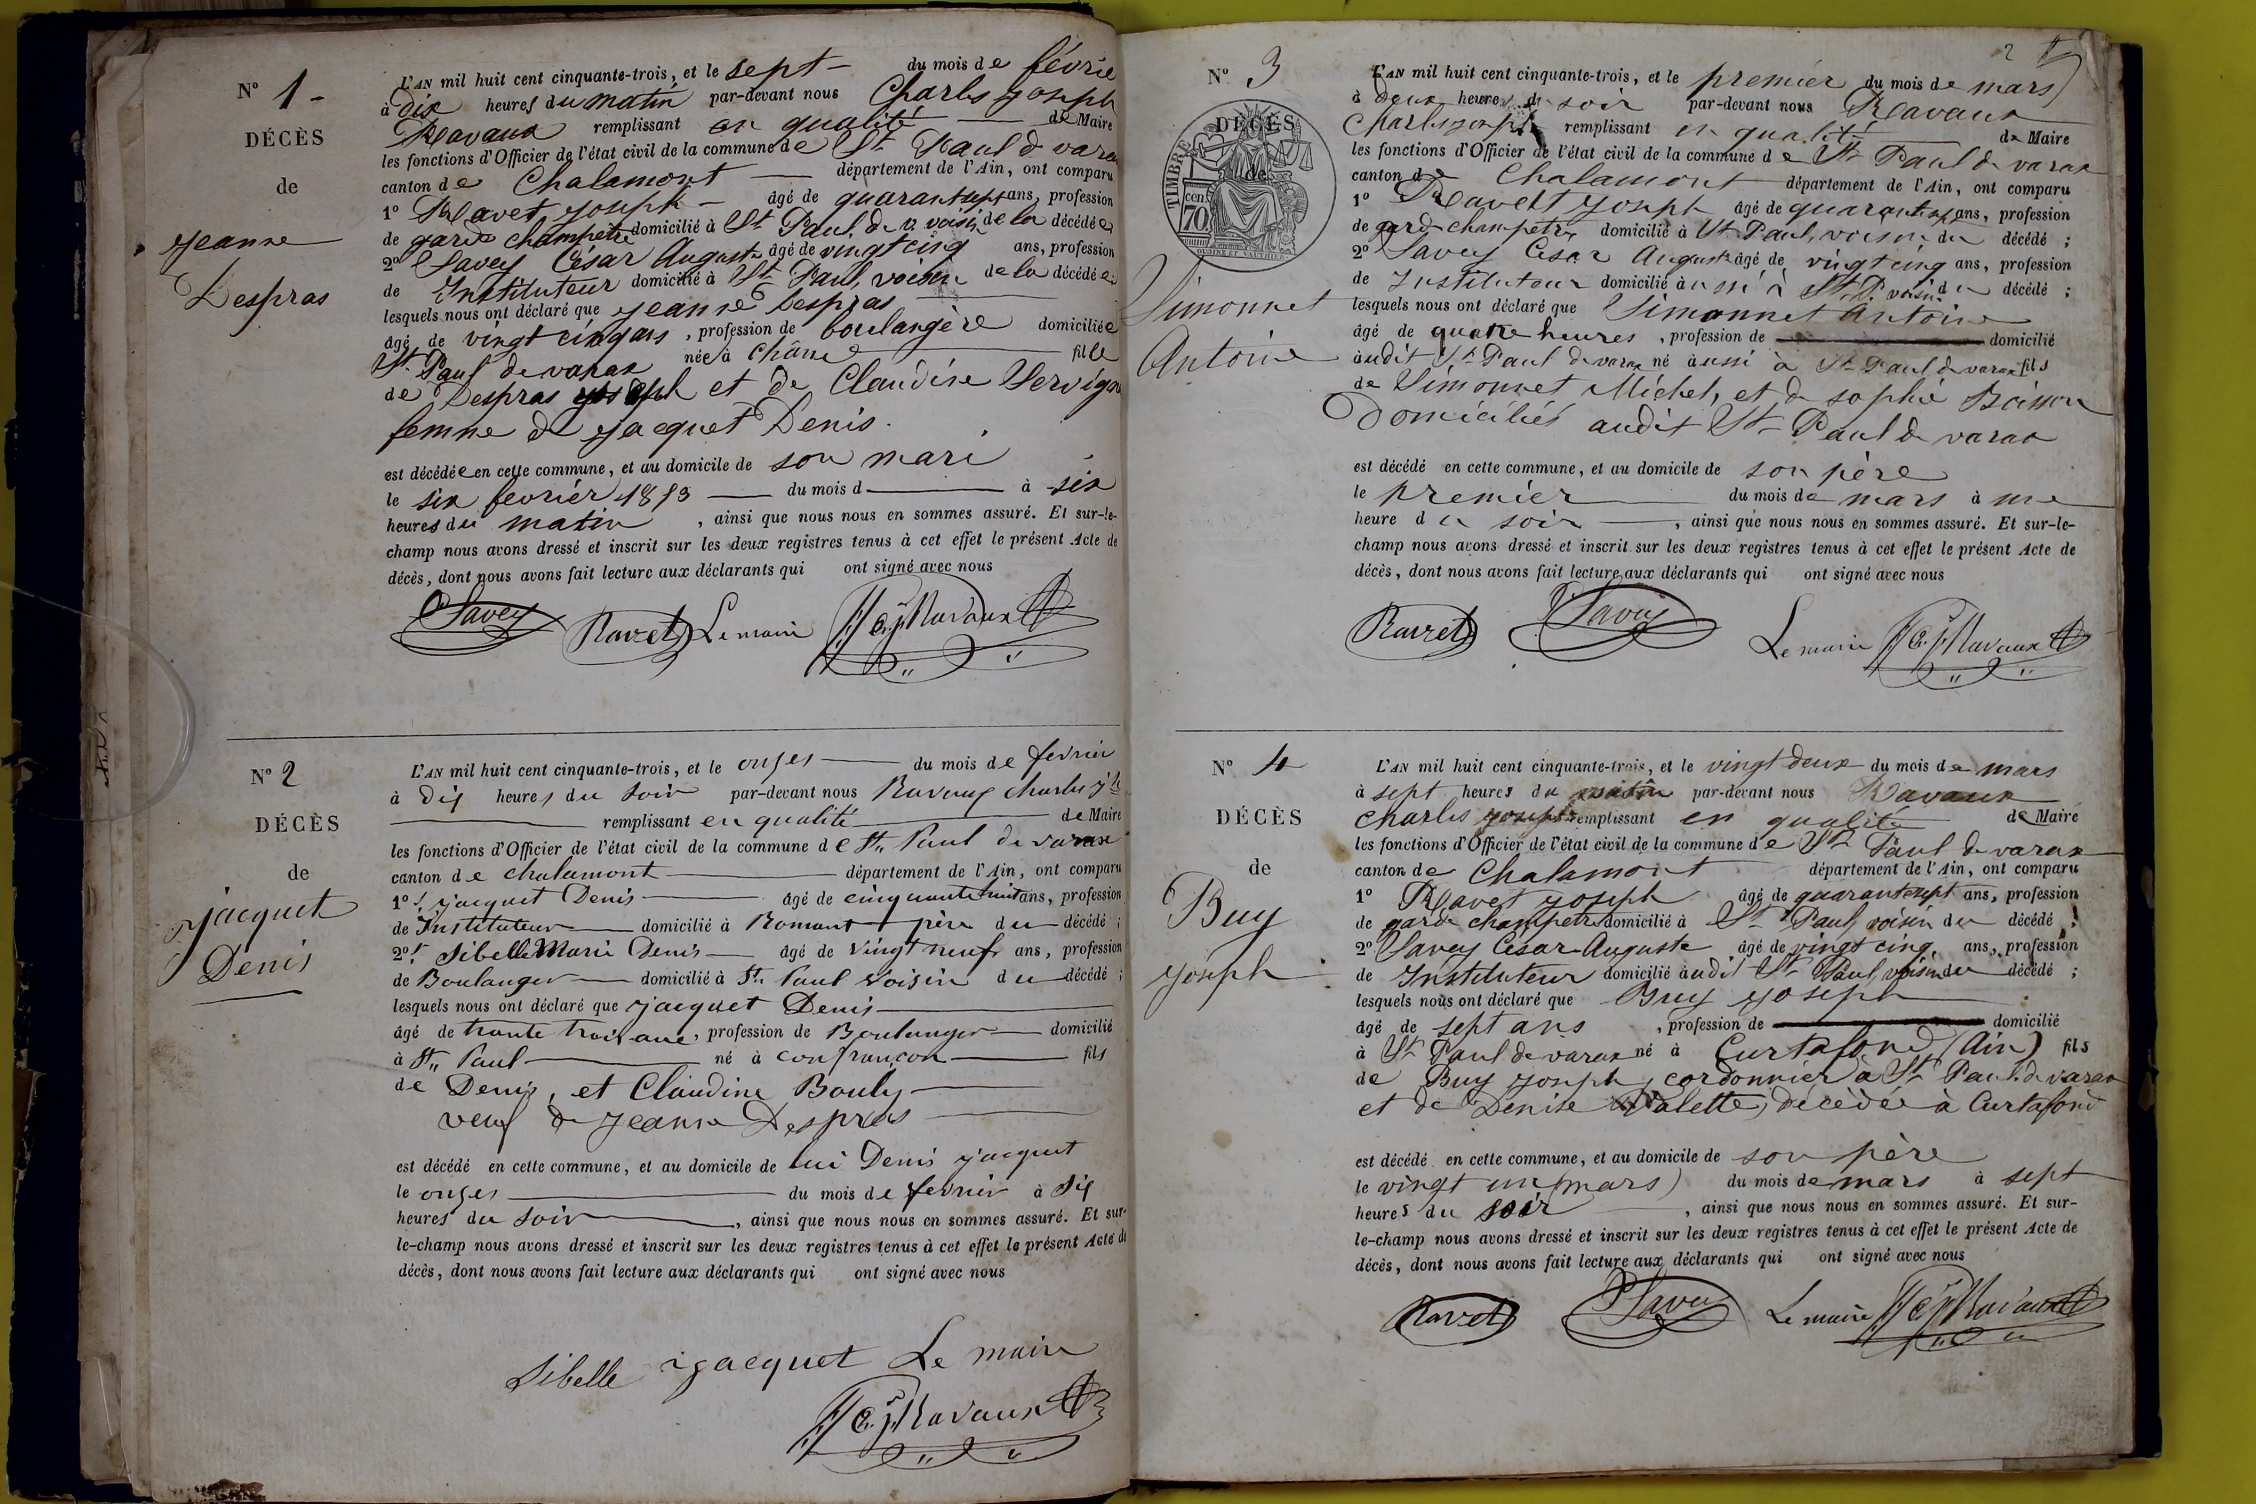 N° 1 -
DÉCÈS
de
Jeanne
Despras
L'AN mil huit cent cinquante-trois, et le sept - du mois de févrie
à dix heures du matin par-devant nous Charles Joseph
Ravaux remplissant en qualité de Maire
les fonctions d'Officier de l'état civil de la commune de St Paul de varax
canton de Chalamont département de l'Ain, ont comparu
1° Ravet Joseph - âgé de quarantsept ans, profession
de garde champetre domicilié à St Paul de v. voisin de la décédée
2° Savey César Auguste âgé de vingt cinq ans, profession
de Instituteur domicilié à St Paul, voisin de la décédée
lesquels nous ont déclaré que Jeanne Despras
âgé de vingt cinq ans, profession de boulangère domiciliée
St Paul de varax née à Chane fille
de Despras Joseph et de Claudine Servign
femme de Jacquet Denis.
est décédée en cette commune, et au domicile de son mari
le six février 1853 du mois d à six
heures du matin, ainsi que nous nous en sommes assuré. Et sur-le-
champ nous avons dressé et inscrit sur les deux registres tenus à cet effet le présent Acte de
décès, dont nous avons fait lecture aux déclarants qui ont signé avec nous
Savey Ravet Le maire Ravaux
N° 2
DÉCÈS
de
Jacquet
Denis
L'AN mil huit cent cinquante-trois, et le onzes du mois de fevrier
à dix heures du soir par-devant nous Ravaux Charles Jh
remplissant en qualité de Maire
les fonctions d'Officier de l'état civil de la commune de St Paul de varax
canton de chalamont département de l'Ain, ont comparu
1° Jacquet Denis âgé de cinquante huit ans, profession
de Instituteur domicilié à Romant père du décédé ;
2° Sibelle Marie Denis âgé de vingt neuf ans, profession
de Boulanger domicilié à St Paul voisin du décédé ;
lesquels nous ont déclaré que Jacquet Denis
âgé de trante trois ans, profession de Boulanger domicilié
à St Paul né à confrançon fils
de Denis, et Claudine Bouly
veuf de Jeanne Despras
est décédé en cette commune, et au domicile de lui Denis Jacquet
le onzes du mois de fevrier à six
heures du soir, ainsi que nous nous en sommes assuré. Et sur-
le-champ nous avons dressé et inscrit sur les deux registres tenus à cet effet le présent Acte de
décès, dont nous avons fait lecture aux déclarants qui ont signé avec nous
Sibelle Jacquet Le maire
Ravaux
2
N° 3
DÉCÈS
de
TIMBRE
cen
70
Simonnet
Antoine
L'AN mil huit cent cinquante-trois, et le premier du mois de mars
à deux heures du soir par-devant nous Ravaux
Charles Joseph remplissant en qualité de Maire
les fonctions d'Officier de l'état civil de la commune de St Paul de varax
canton de Chalamont département de l'Ain, ont comparu
1° Ravet Joseph âgé de quarantsept ans, profession
de garde champetre domicilié à St Paul, voisin du décédé ;
2° Savey César Auguste âgé de vingt cinq ans, profession
de Instituteur domicilié aussi à St P. voisin du décédé ;
lesquels nous ont déclaré que Simonnet Antoine
âgé de quatre heures, profession de domicilié
audit St Paul de varax né aussi à St Paul de varax fils
de Simonnet Michel, et de sophie Boisson
Domiciliés audit St Paul de varax
est décédé en cette commune, et au domicile de son père
le premier du mois de mars à une
heure du soir, ainsi que nous nous en sommes assuré. Et sur-le-
champ nous avons dressé et inscrit sur les deux registres tenus à cet effet le présent Acte de
décès, dont nous avons fait lecture aux déclarants qui ont signé avec nous
Ravet Savey Le maire Ravaux
N° 4
DÉCÈS
de
Buy
Joseph
L'AN mil huit cent cinquante-trois, et le vingt deux du mois de mars
à sept heures du matin par-devant nous Ravaux
Charles Joseph remplissant en qualité de Maire
les fonctions d'Officier de l'état civil de la commune de St Paul de varax
canton de Chalamont département de l'Ain, ont comparu
1° Ravet Joseph âgé de quarantsept ans, profession
de garde champetre domicilié à St Paul, voisin du décédé ;
2° Savey César Auguste âgé de vingt cinq ans, profession
de Instituteur domicilié audit St Paul, voisin du décédé ;
lesquels nous ont déclaré que Buy Joseph
âgé de sept ans, profession de domicilié
à St Paul de varax né à Curtafond (Ain) fils
de Buy Joseph, cordonnier à St Paul de varax
et de Denise Palette, décédée à Curtafond
est décédé en cette commune, et au domicile de son père
le vingt un (mars) du mois de mars à sept
heures du soir, ainsi que nous nous en sommes assuré. Et sur-
le-champ nous avons dressé et inscrit sur les deux registres tenus à cet effet le présent Acte de
décès, dont nous avons fait lecture aux déclarants qui ont signé avec nous
Ravet Savey Le maire Ravaux